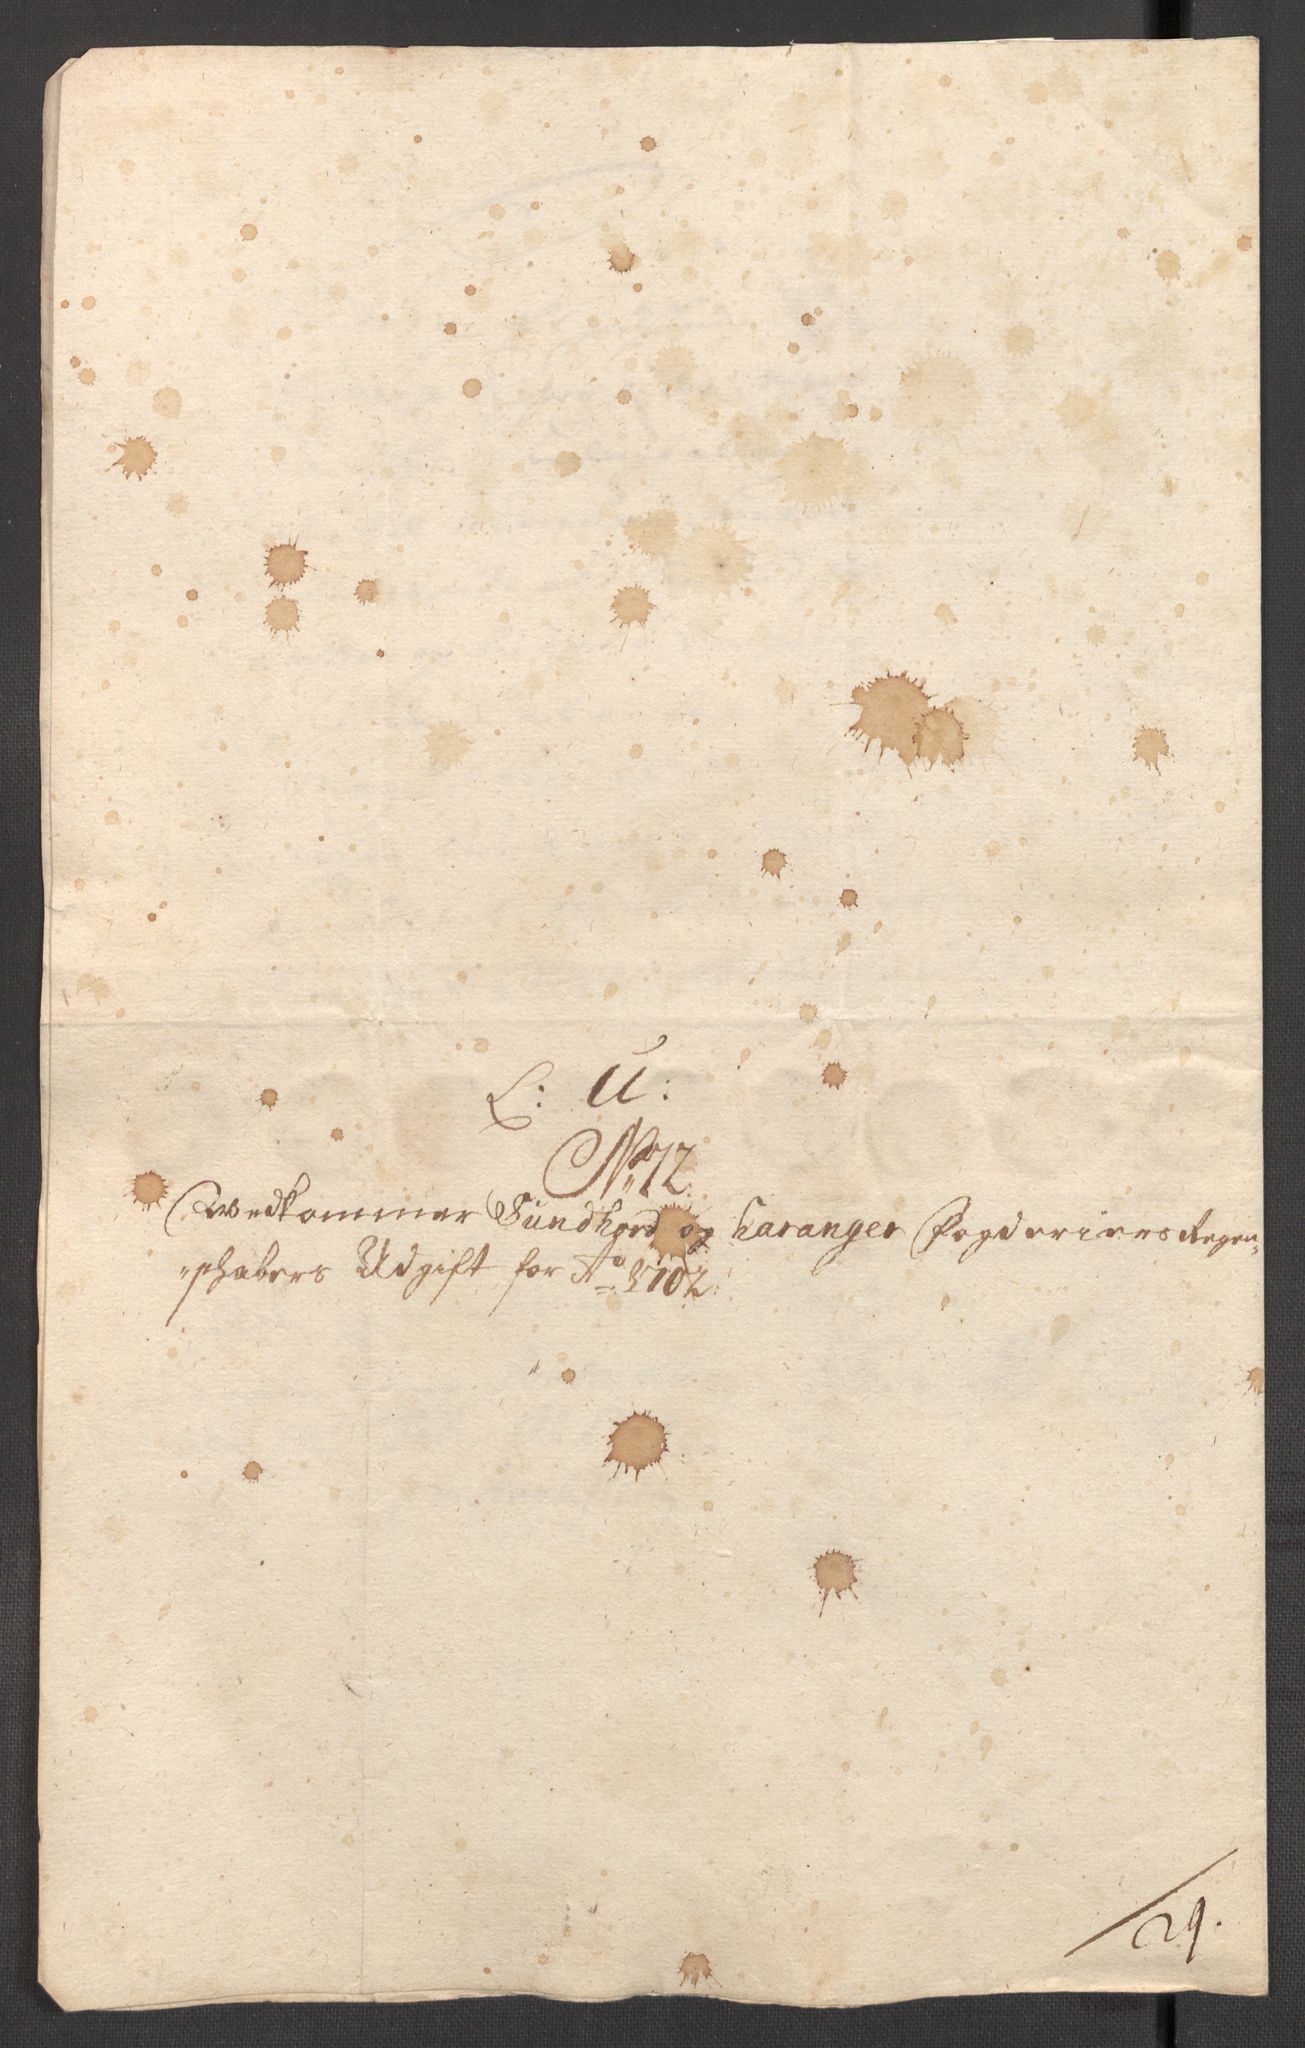 L: U:
No 12
Wedkommer Sundhord og Haranger Fogderiers Regen„
„schabers Udgift for Ao 1702.
29.